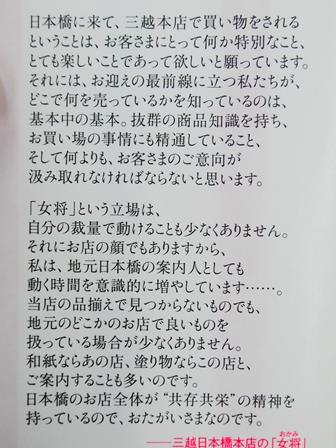 日本橋に来て、三越本店で買い物をされる
ということは、お客さまにとって何か特別なこと、
とても楽しいことであって欲しいと願っています。
それには、お迎えの最前線に立つ私たちが、
どこで何を売っているかを知っているのは、
基本中の基本。抜群の商品知識を持ち、
お買い場の事情にも精通していること、
そして何よりも、お客さまのご意向が
汲み取れなければならないと思います。
「女将」という立場は、
自分の裁量で動けることも少なくありません。
それにお店の顔でもありますから、
私は、地元日本橋の案内人としても
動く時間を意識的に増やしています……。
当店の品揃えで見つからないものでも、
地元のどこかのお店で良いものを
扱っている場合が少なくありません。
和紙ならあの店、塗り物ならこの店と、
ご案内することも多いのです。
日本橋のお店全体が“共存共栄”の精神を
持っているので、おたがいさまなのです。
おかみ
――三越日本橋本店の「女将」